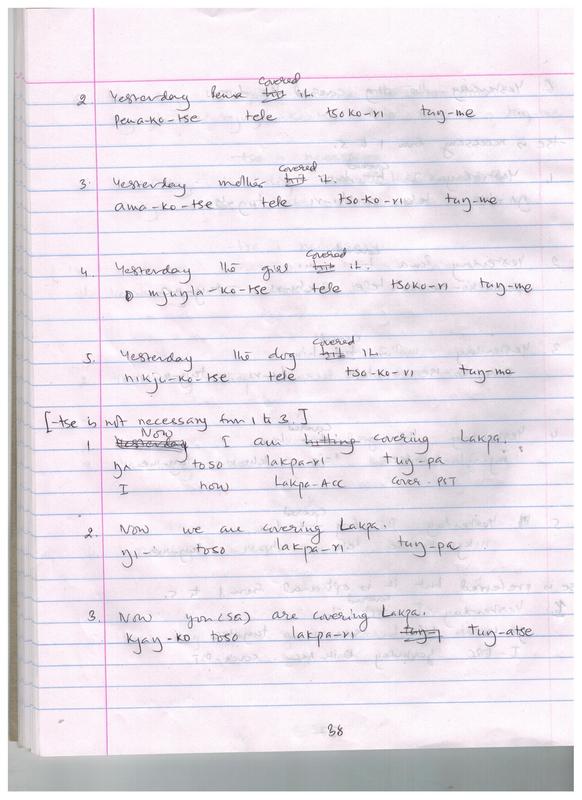 Covered
2. Yesterday Pema hit it.
pema-ko-tse tele tsoko-ri tuŋ-me
Covered
3. Yesterday mother hit it.
ama-ko-tse tele tso-ko-ri tuŋ-me
Covered
4. Yesterday the girl hit it.
mjuŋla-ko-tse tele tsoko-ri tuŋ-me
Covered
5. Yesterday the dog hit it.
nikju-ko-tse tele tso-ko-ri tuŋ-me
[-tse is not necessary from 1 to 3.]
Now
1. Yesterday I am hitting covering Lakpa.
ŋʌ toso lakpa-ri tuŋ-pa
I now Lakpa-ACC cover-PST
2. Now we are covering Lakpa.
ŋi- toso lakpa-ri tuŋ-pa
3. Now you (SG) are covering Lakpa.
kjaŋ-ko toso lakpa-ri tuŋ- tuŋ-atse
38